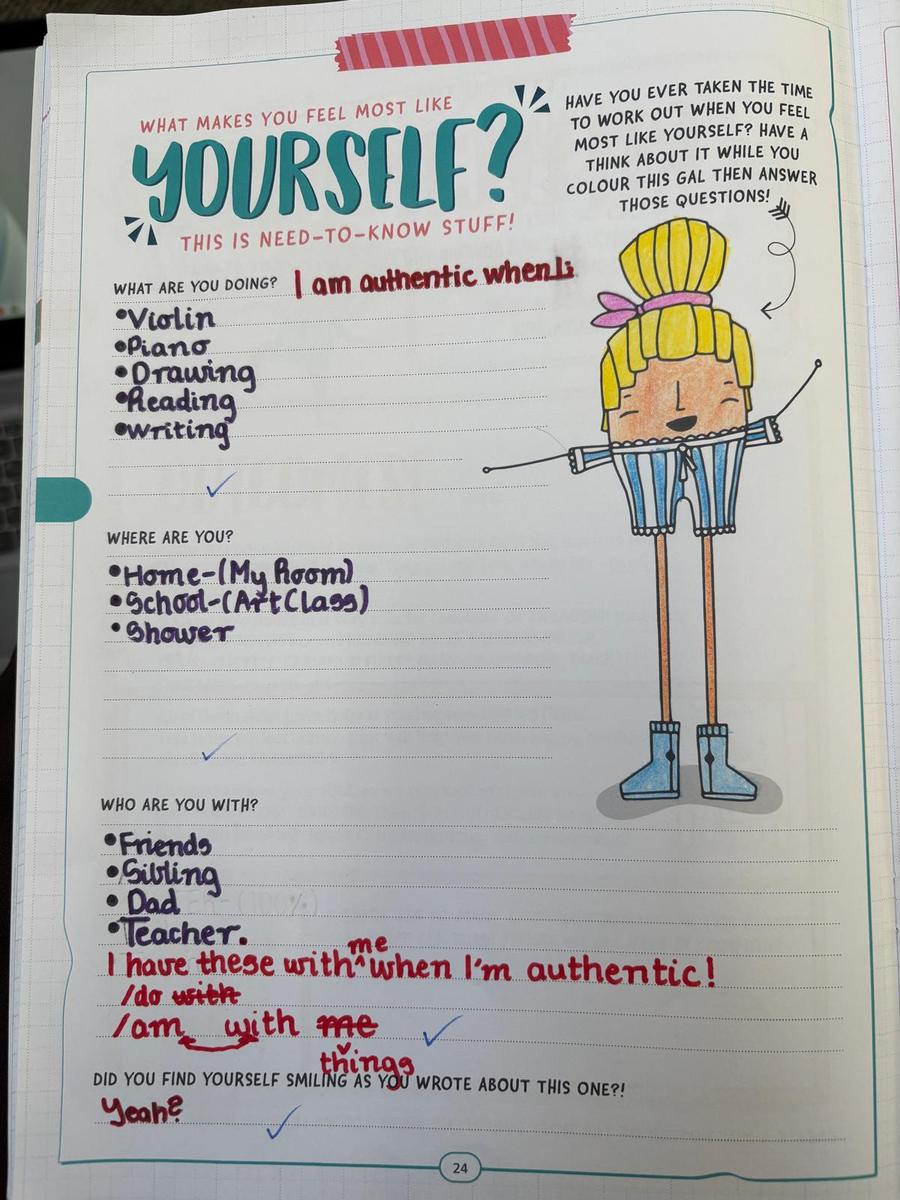 WHAT MAKES YOU FEEL MOST LIKE
YOURSELF?
THIS IS NEED-TO-KNOW STUFF!
HAVE YOU EVER TAKEN THE TIME
TO WORK OUT WHEN YOU FEEL
MOST LIKE YOURSELF? HAVE A
THINK ABOUT IT WHILE YOU
COLOUR THIS GAL THEN ANSWER
THOSE QUESTIONS!
WHAT ARE YOU DOING? I am authentic when
•Violin
•Piano
•Drawing
•Reading
•writing
WHERE ARE YOU?
•Home-(My Room)
•School-(Art Class)
•Shower
WHO ARE YOU WITH?
•Friends
•Sibling
•Dad
•Teacher.
me
I have these with^when I'm authentic!
/do with
/am with me
things
DID YOU FIND YOURSELF SMILING AS YOU WROTE ABOUT THIS ONE?!
Yeah?
24